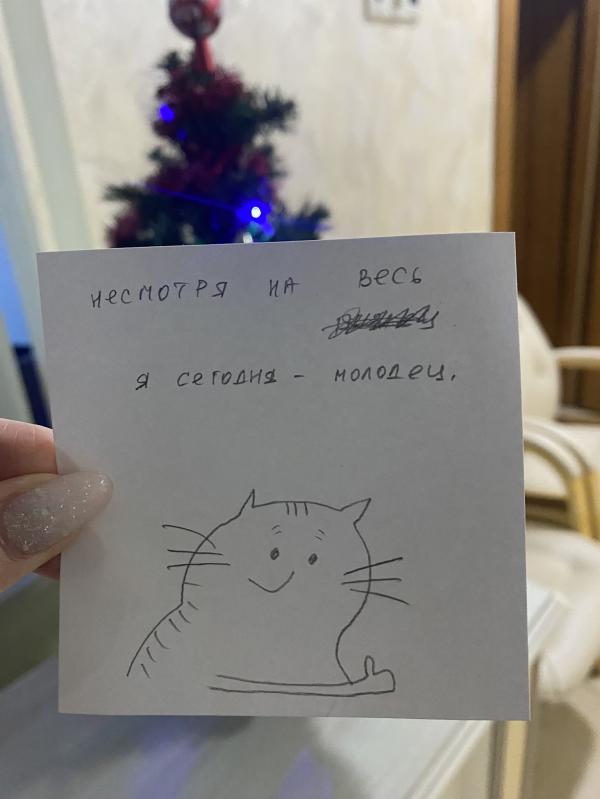 несмотря на весь
я сегодня – молодец.